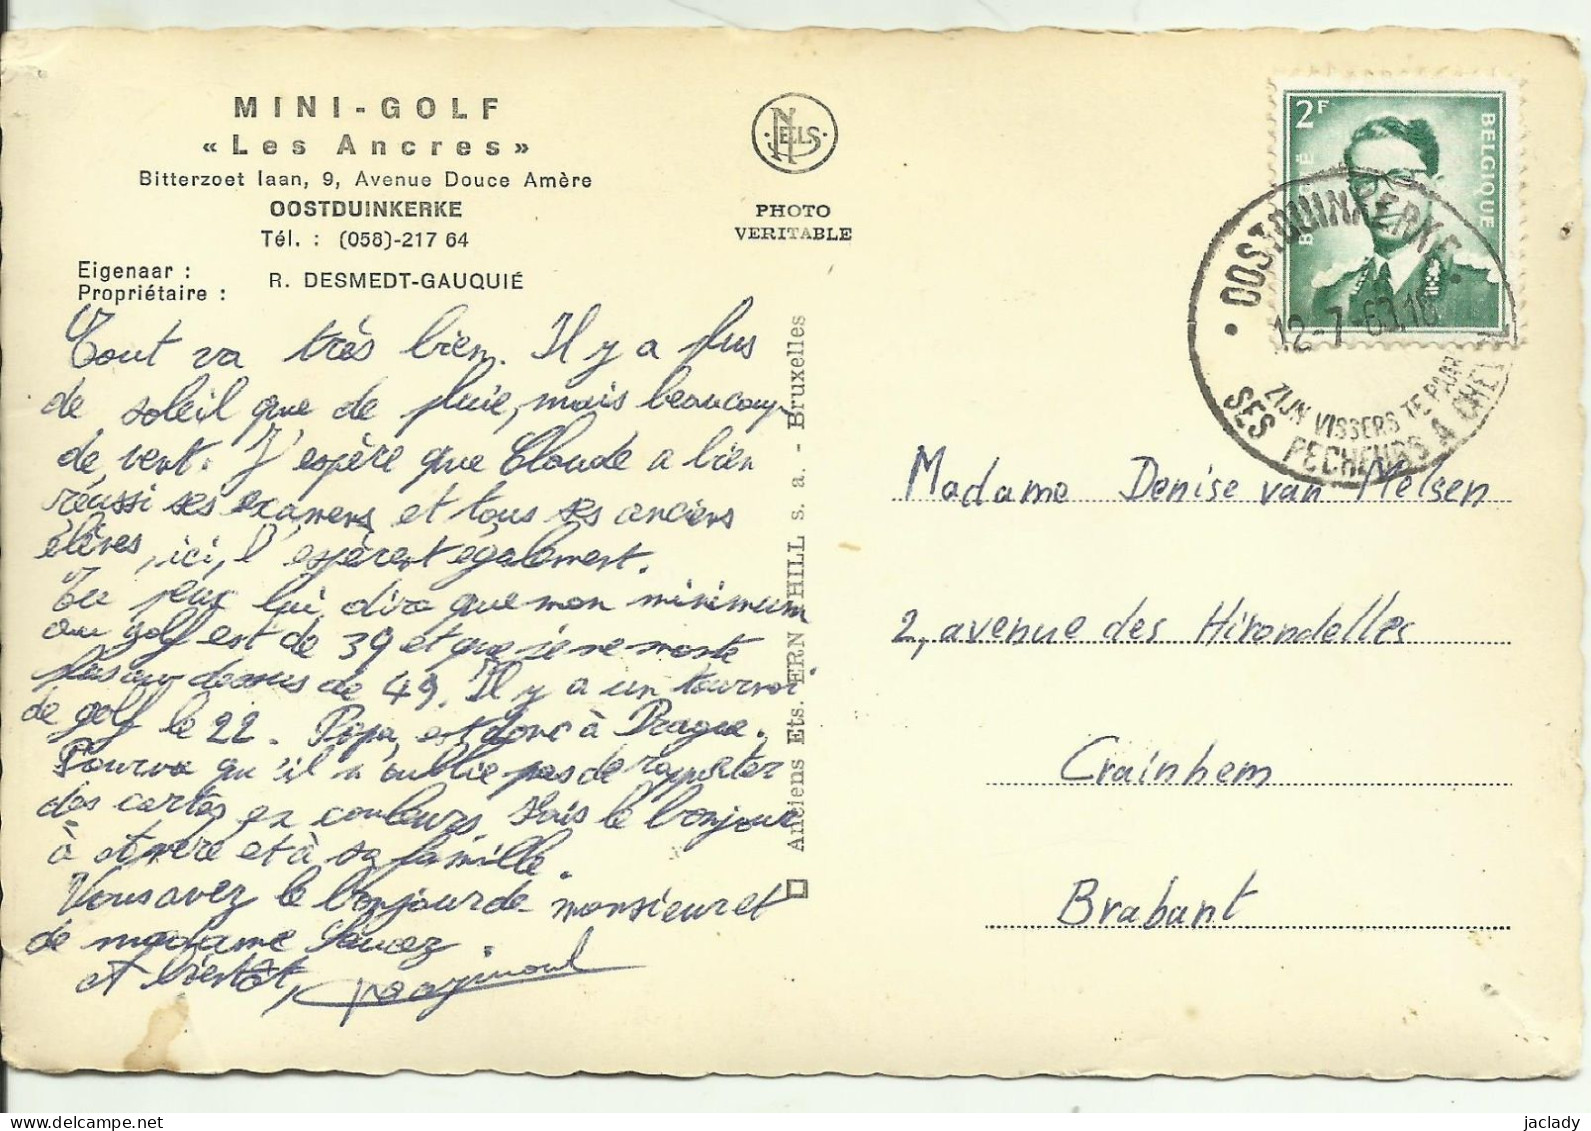 MINI-GOLF
« Les Ancres »
Bitterzoet laan, 9, Avenue Douce Amère
OOSTDUINKERKE
Tél. : (058)-217 64
Eigenaar :
Propriétaire :
R. DESMEDT-GAUQUIÉ
Tout va très bien. Il y a plus
de soleil que de pluie, mais beaucoup
de vent. J'espère que Claude a bien
réussi ses examens et tous ses anciens
élèves, ici, l'espèrent également.
Tu peux lui dire que mon minimum
au golf est de 39 et que je ne monte
plus au dessus de 49. Il y a un tournoi
de golf le 22. Papa est donc à Prague.
Pourvu qu'il n'oublie pas de rapporter
des cartes en couleurs. Fais le bonjour
à et à sa famille.
Vous avez le bonjour de monsieur et
de madame
A bientôt, Raymond
NELS
PHOTO
VERITABLE
Anciens Ets. ERN. THILL s. a. - Bruxelles
2F
BELGIË
BELGIQUE
OOSTDUINKERKE
12-7-6 .18
ZIJN VISSERS TE PAARD
SES PECHEURS A CHEVAL
Madame Denise van Melsen
2, avenue des Hirondelles
Crainhem
Brabant
jaclady